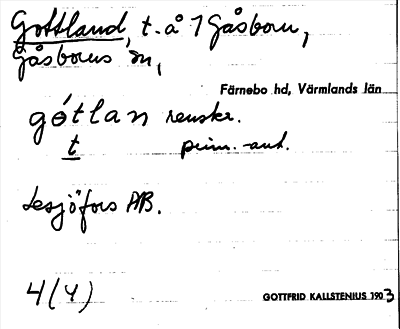 Gottland, t. å 1 Gåsborn,
Gåsborns sn,
Färnebo hd, Värmlands län
gótlan renskr.
t prim.-ant.
Lesjöfors AB.
4(4)
GOTTFRID KALLSTENIUS 1903